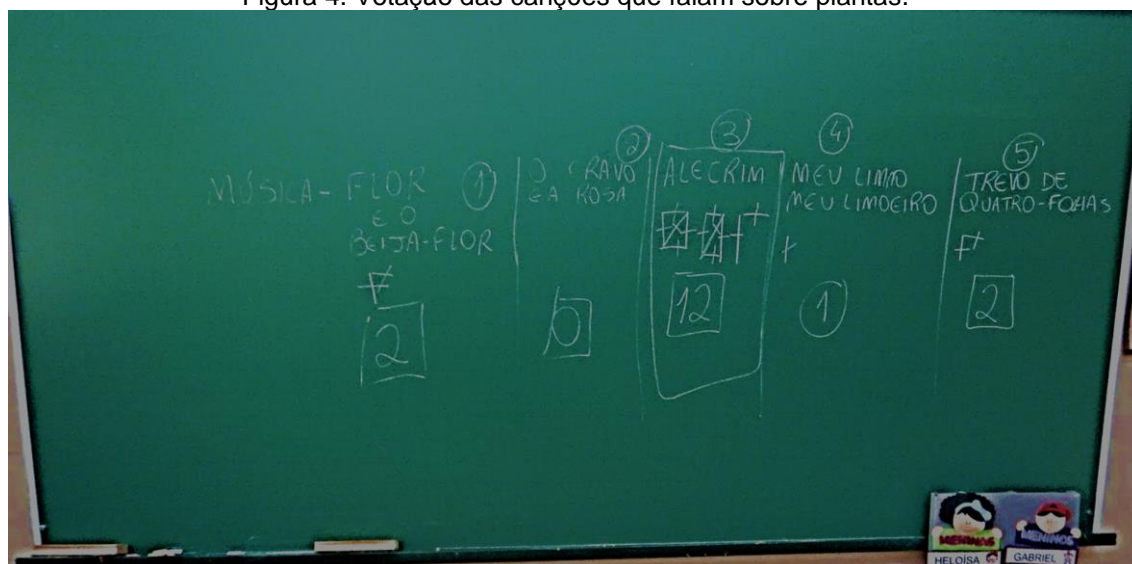 Figura 4: Votação das canções que falam sobre plantas.
MÚSICA - FLOR
E O
BEIJA-FLOR
1
2
O CRAVO
E A ROSA
0
3
ALECRIM
12
4
MEU LIMÃO
MEU LIMOEIRO
1
5
TREVO DE
QUATRO-FOLHAS
2
MENINAS
HELOÍSA
MENINOS
GABRIEL